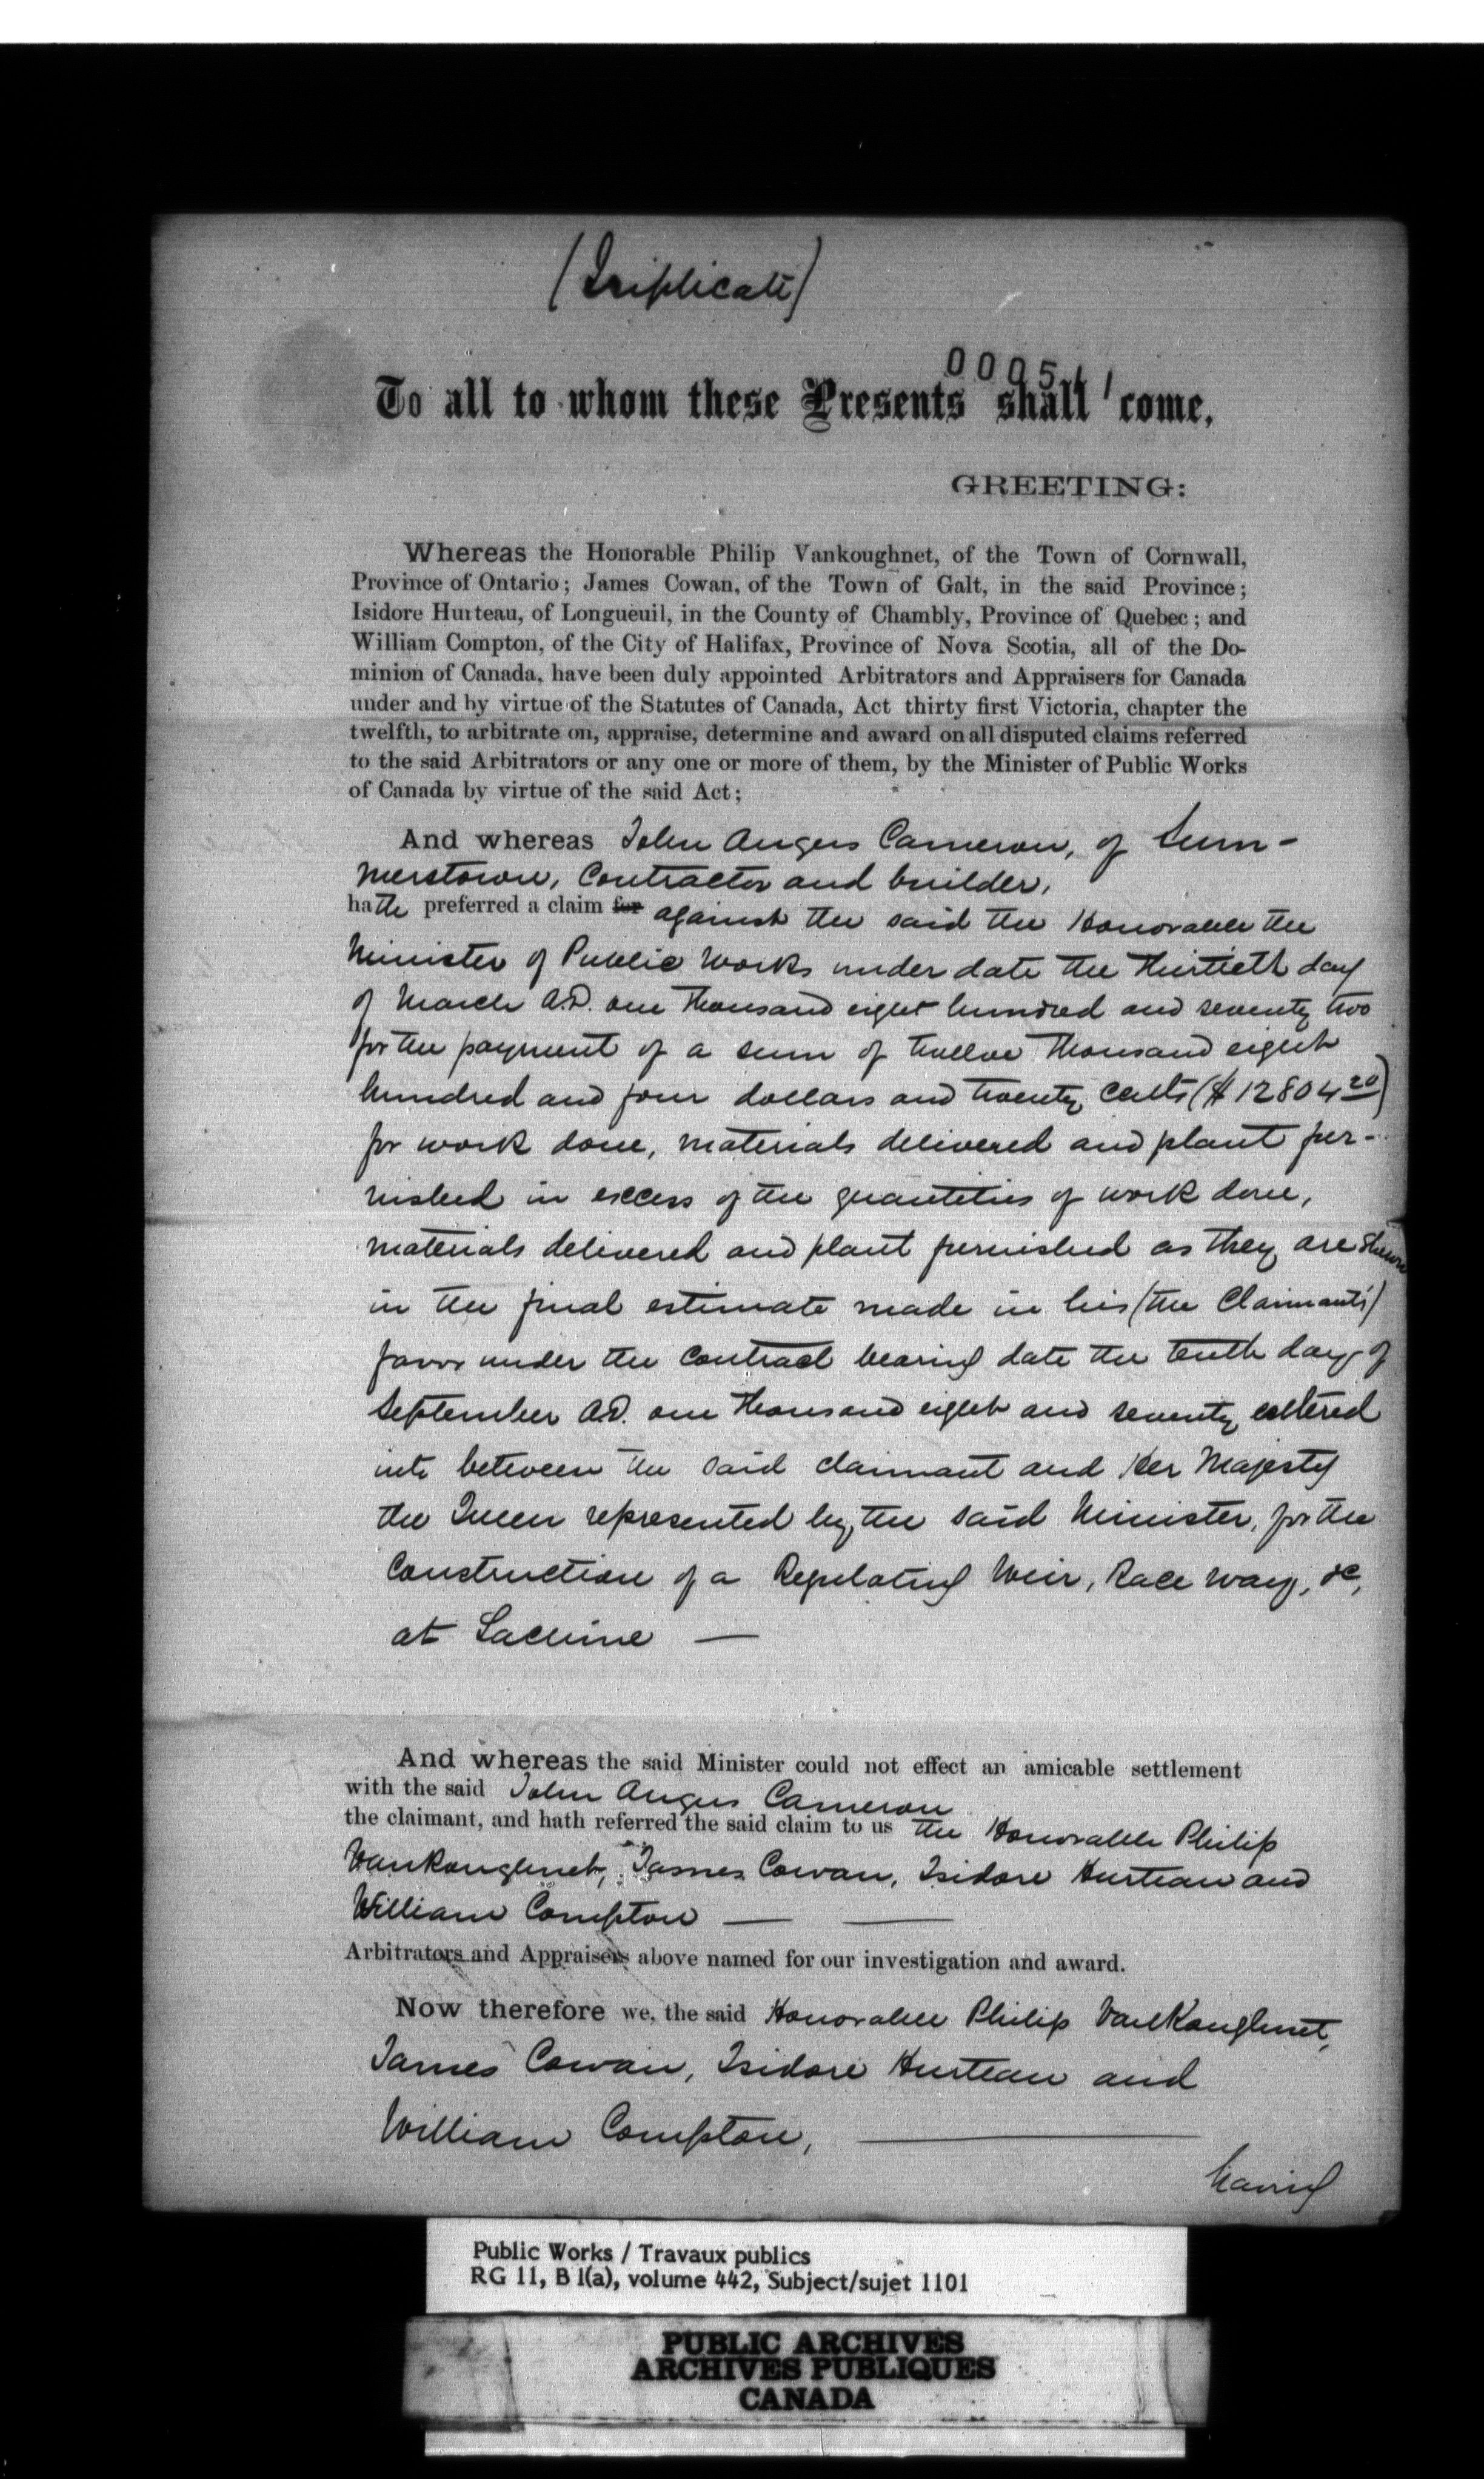 (Triplicate)
0005
To all to whom these Presents shall come,
GREETING:
Whereas the Honorable Philip Vankoughnet, of the Town of Cornwall,
Province of Ontario; James Cowan, of the Town of Galt, in the said Province;
Isidore Hurteau, of Longueuil, in the County of Chambly, Province of Quebec; and
William Compton, of the City of Halifax, Province of Nova Scotia, all of the Do-
minion of Canada, have been duly appointed Arbitrators and Appraisers for Canada
under and by virtue of the Statutes of Canada, Act thirty first Victoria, chapter the
twelfth, to arbitrate on, appraise, determine and award on all disputed claims referred
to the said Arbitrators or any one or more of them, by the Minister of Public Works
of Canada by virtue of the said Act;
And whereas John Angus Cameron, of Sum-
merstown, Contractor and builder,
hath preferred a claim for against the said the Honorable the
Minister of Public Works under date the thirtieth day
of March A.D. one thousand eight hundred and seventy two
for the payment of a sum of twelve thousand eight
hundred and four dollars and twenty cents ($12804 20)
for work done, materials delivered and plant fur-
nished in excess of the quantities of work done,
materials delivered and plant furnished as they are shewn
in the final estimate made in his (the Claimant's)
favor under the contract bearing date the tenth day of
September A.D. one thousand eight and seventy entered
into between the said claimant and Her Majesty
the Queen represented by the said Minister, for the
Construction of a Regulating Weir, Race way, &c,
at Lachine —
And whereas the said Minister could not effect an amicable settlement
with the said John Angus Cameron
the claimant, and hath referred the said claim to us the Honorable Philip
VanKoughnet, James Cowan, Isidore Hurteau and
William Compton — —
Arbitrators and Appraisers above named for our investigation and award.
Now therefore we, the said Honorable Philip VanKoughnet,
James Cowan, Isidore Hurteau and
William Compton, —
having
Public Works / Travaux publics
RG 11, B 1(a), volume 442, Subject/sujet 1101
PUBLIC ARCHIVES
ARCHIVES PUBLIQUES
CANADA